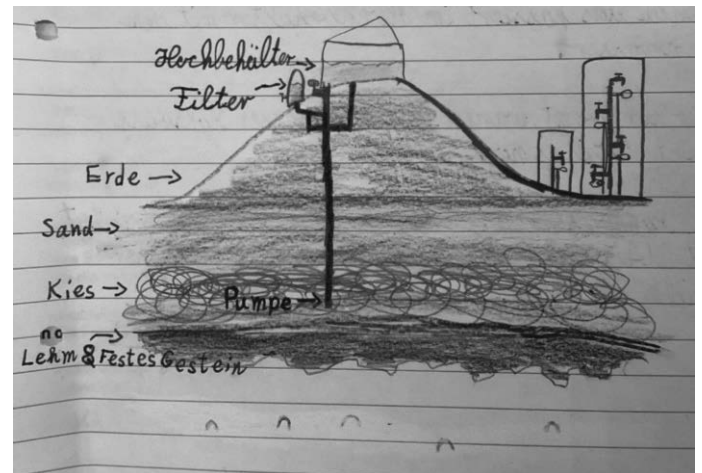 Hochbehälter
Filter
Erde
Sand
Kies
Pumpe
no
Lehm & Festes Gestein